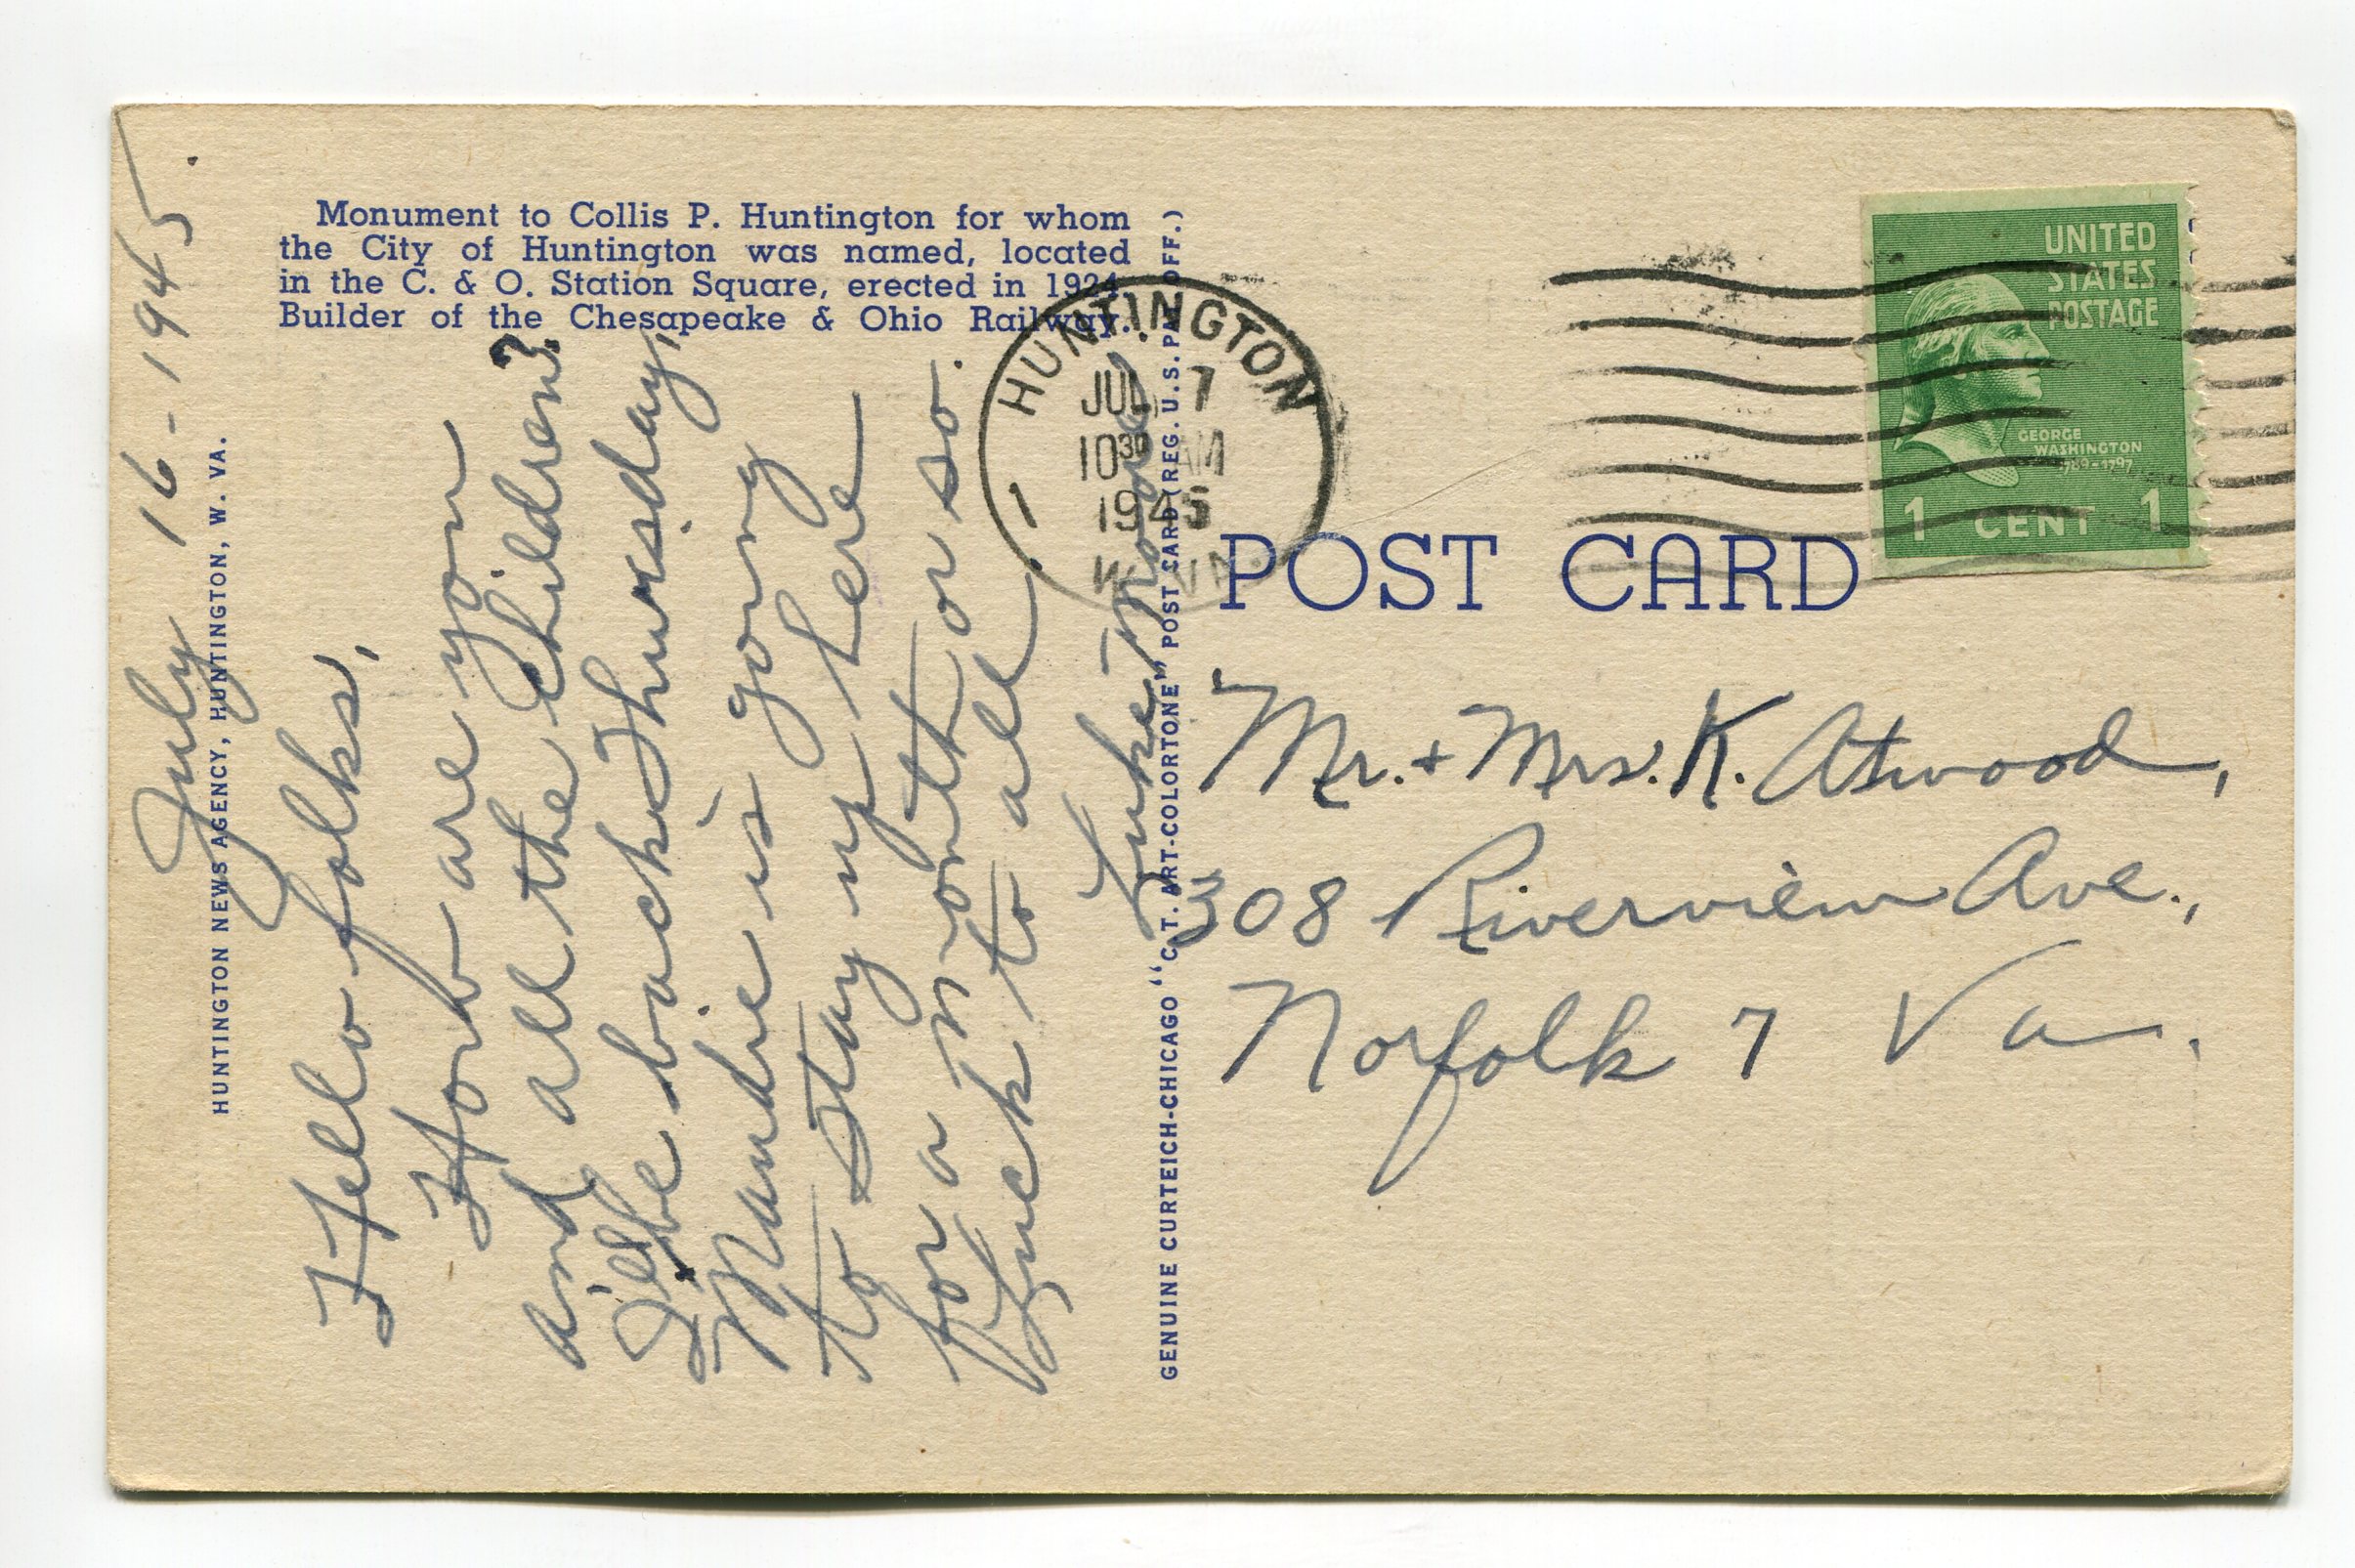 Monument to Collis P. Huntington for whom
the City of Huntington was named, located
in the C. & O. Station Square, erected in 1924.
Builder of the Chesapeake & Ohio Railway.
HUNTINGTON NEWS AGENCY, HUNTINGTON, W. VA.
July 16-1945.
Hello folks,
How are you
and all the children?
I'll be back Thursday,
Maudie is going
to stay up here
for a month or so.
Luck to all
GENUINE CURTEICH-CHICAGO "C. T. ART-COLORTONE" POST CARD (REG. U.S. PAT. OFF.)
HUNTINGTON
JUL 17
10 30 AM
1945
W. VA.
UNITED
STATES
POSTAGE
GEORGE
WASHINGTON
1789-1797
1 CENT 1
POST CARD
Mr. + Mrs. K. Atwood,
308 Riverview Ave.,
Norfolk 7 Va.